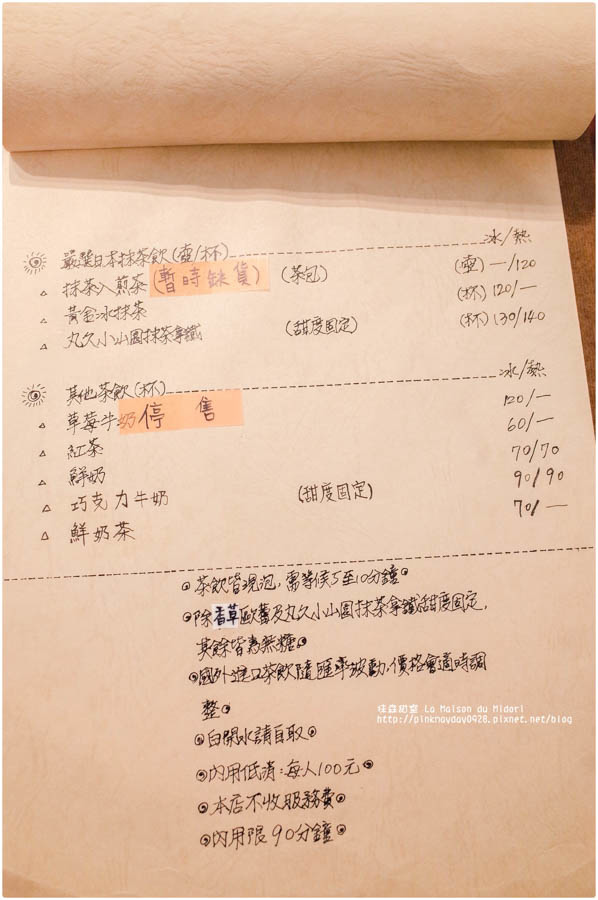 冰/熱
嚴選日本抹茶飲(壺/杯)
△ 抹茶入煎茶(暫時缺貨) (茶包) (壺) 一/120
△ 黃金冰抹茶 (杯) 120/一
△ 丸久小山園抹茶拿鐵 (甜度固定) (杯) 130/140
冰/熱
其他茶飲(杯)
△ 草莓牛奶 停 售 120/一
△ 紅茶 60/一
△ 鮮奶 70/70
△ 巧克力牛奶 (甜度固定) 90/90
△ 鮮奶茶 70/一
茶飲皆現泡,需等候5至10分鐘
除香草歐蕾及丸久小山園抹茶拿鐵甜度固定,
其餘皆為無糖
國外進口茶飲隨匯率波動,價格會適時調
整
白開水請自取
內用低消:每人100元
本店不收服務費
內用限90分鐘
沐森和室 La Maison du Midori
http://pinknayday0928.pixnet.net/blog